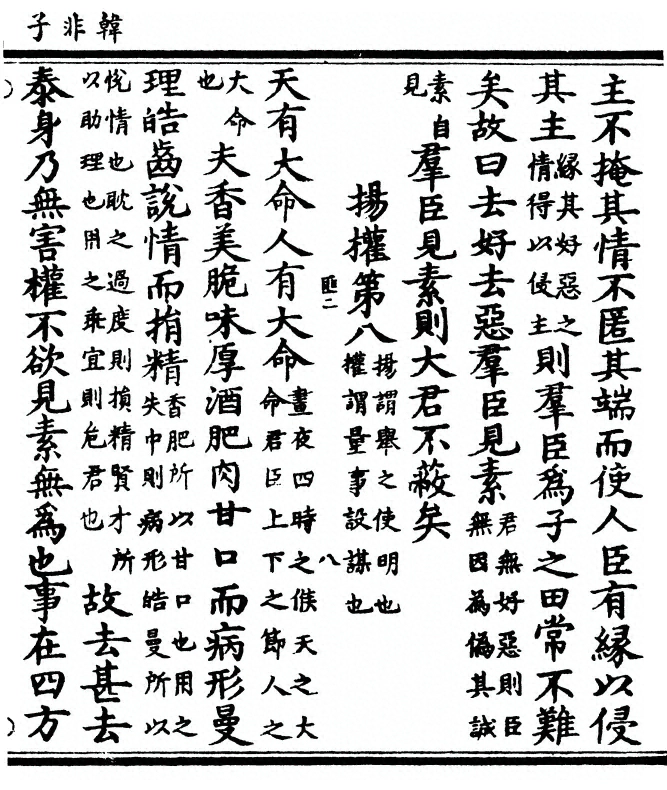 韓非子
主不掩其情不匿其端而使人臣有緣以侵
其主緣其好惡之情得以侵主則羣臣爲子之田常不難
矣故曰去好去惡羣臣見素君無好惡則臣無因為僞其誠
素自見羣臣見素則大君不蔽矣
揚權第八揚謂舉之使明也權謂量事設謀也
八
天有大命人有大命晝夜四時之候天之大命君臣上下之節人之
大命也夫香美脆味厚酒肥肉甘口而病形曼
理皓齒說情而捐精香肥所以甘口也用之失中則病形皓曼所以
悅情也耽之過度則損精賢才所以助理也用之乖宜則危君也故去甚去
泰身乃無害權不欲見素無爲也事在四方